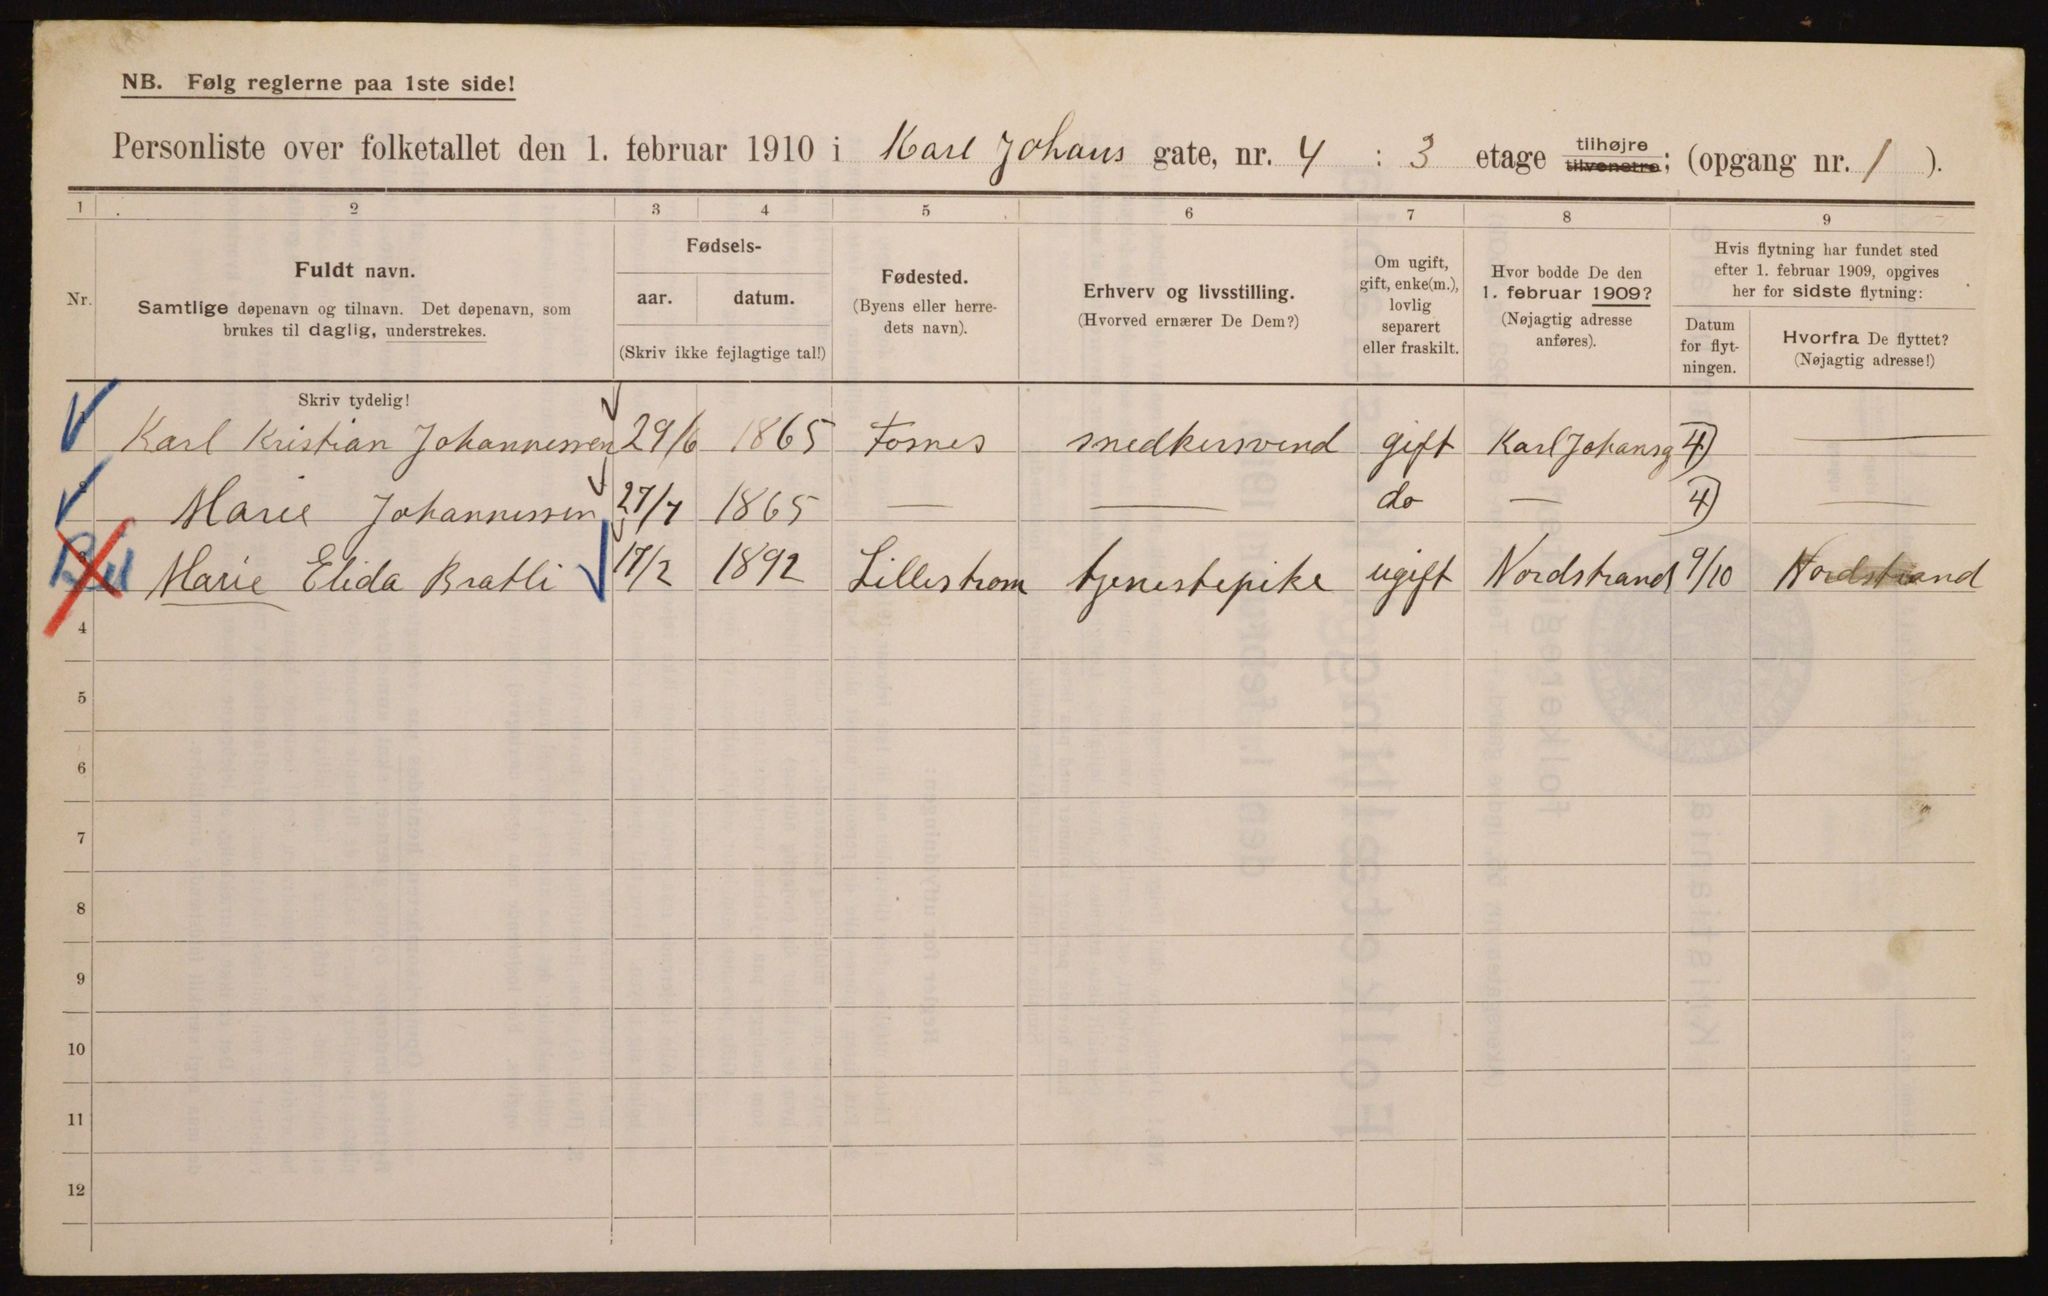 NB. Følg reglerne paa 1ste side!
Personliste over folketallet den 1. februar 1910 i Karl Johans gate, nr. 4 : 3 etage tilhøjre tilvenstre; (opgang nr. 1 ).
1 2 3 4 5 6 7 8 9
Nr.
Fuldt navn.
Samtlige døpenavn og tilnavn. Det døpenavn, som
brukes til daglig, understrekes.
Fødsels-
aar. datum.
(Skriv ikke fejlagtige tal!)
Fødested.
(Byens eller herre-
dets navn).
Erhverv og livsstilling.
(Hvorved ernærer De Dem?)
Om ugift,
gift, enke(m.),
lovlig
separert
eller fraskilt.
Hvor bodde De den
1. februar 1909?
(Nøjagtig adresse
anføres).
Hvis flytning har fundet sted
efter 1. februar 1909, opgives
her for sidste flytning:
Datum
for flyt-
ningen.
Hvorfra De flyttet?
(Nøjagtig adresse!)
Skriv tydelig!
Karl Kristian Johannessen 29/6 1865 Fosnes snedkersvend gift Karl Johansg 4) —
Marie Johannessen 27/7 1865 — — do — 4) —
Marie Elida Bratli 17/2 1892 Lillestrøm tjenestepike ugift Nordstrand 9/10 Nordstrand
4
5
6
7
8
9
10
11
12